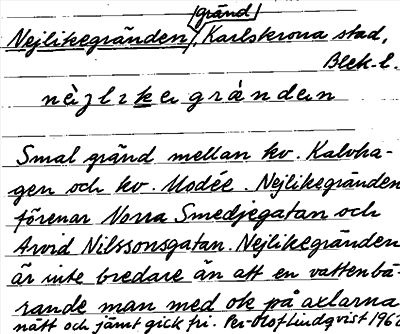 gränd
Nejlikegränden, Karlskrona stad,
Blek. l.
nèjlikegránden
Smal gränd mellan kv. Kalvha-
gen och kv. Modée. Nejlikegränden
förenar Norra Smedjegatan och
Arvid Nilssonsgatan. Nejlikegränden
är inte bredare än att en vattenbä-
rande man med ok på axlarna
nätt och jämt gick fri. Per-Olof Lindqvist